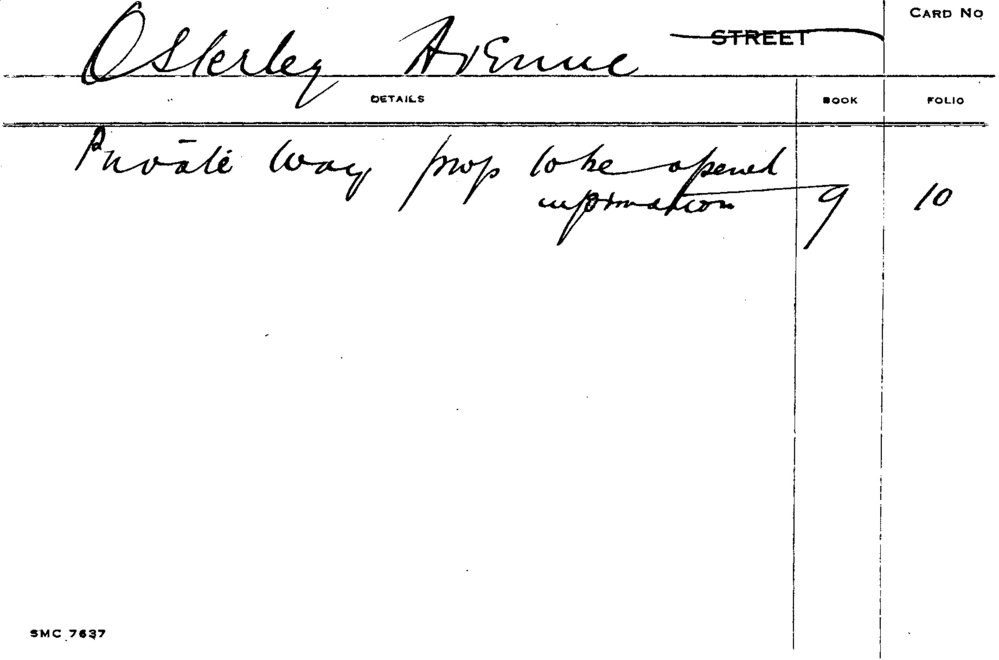 Osterley Avenue STREET CARD NO
DETAILS BOOK FOLIO
Private Way prop to be opened
information 9 10
SMC 7637